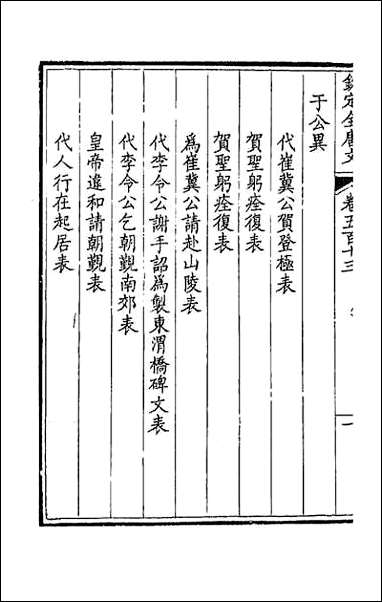 欽定全唐文
卷五百十三
一
于公異
代崔冀公賀登極表
賀聖躬痊復表
賀聖躬痊復表
為崔冀公請赴山陵表
代李令公謝手詔為製東渭橋碑文表
代李令公乞朝覲南郊表
皇帝違和請朝覲表
代人行在起居表